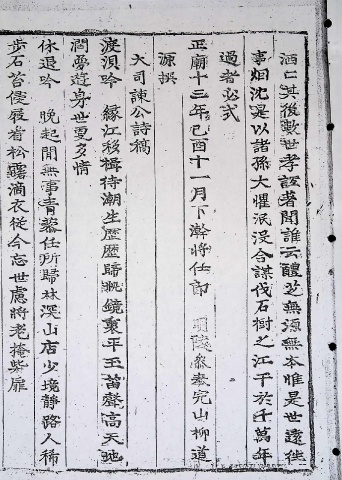 洒亡其後數世孝誼著聞誰云醴芝無源無本惟是世遠徃
事烟沈是以諸孫大懼泯没合謀伐石樹之江平於千萬年
過者必式
正廟十三年己酉十一月下澣將任郎 陵參奉完山柳道
源撰
大司諫公詩稿
渡浿吟 緣江移楫待潮生歷歷歸帆鏡裏平玉笛聲高天地
濶夢遊身世夏多情
休退吟 晩起閒無事青藜任所歸林深山店少境静路人稀
步石苔侵屐看松露滴衣從今忘世慮將老掩柴扉